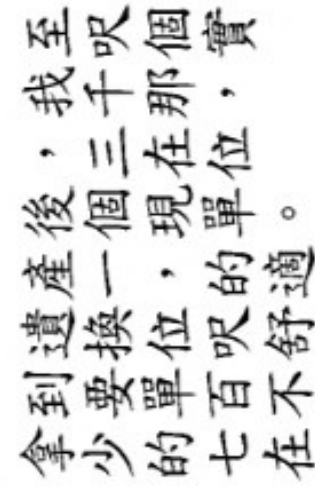 拿到遺產後，我至
少要換一個三千呎
的單位，現在那個
七百呎的單位，實
在不舒適。